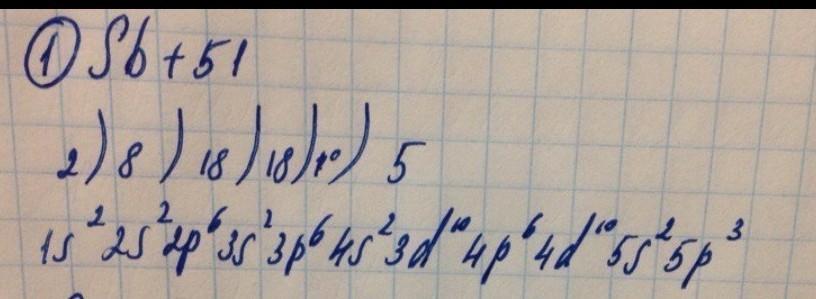 ① Sb + 51
2) 8 ) 18 ) 18 ) ) 5
1s² 2s² 2p⁶ 3s² 3p⁶ 4s² 3d¹⁰ 4p⁶ 4d¹⁰ 5s² 5p³